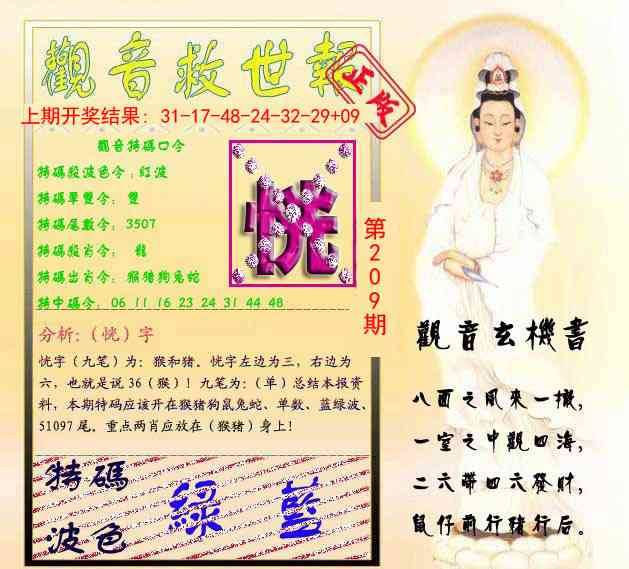 觀音救世報
正版
上期开奖结果：31-17-48-24-32-29+09
觀音特碼口令
特碼殺波色令：紅波
特碼單雙令： 雙
特碼尾數令：3507
特碼殺肖令： 龍
特碼出肖令： 猴豬狗兔蛇
特中碼令：06 11 16 23 24 31 44 48
恍
第209期
分析：（恍）字
恍字（九笔）为：猴和猪。恍字左边为三，右边为
六，也就是说 36（猴）！九笔为：（单）总结本报资
料，本期特码应该开在猴猪狗鼠兔蛇、单数、蓝绿波、
51097 尾。重点两肖应放在（猴猪）身上！
特碼
波色
綠 藍
觀音玄機書
八面之風來一機，
一室之中觀四海，
二六聯四六發財，
鼠仔前行豬行后。